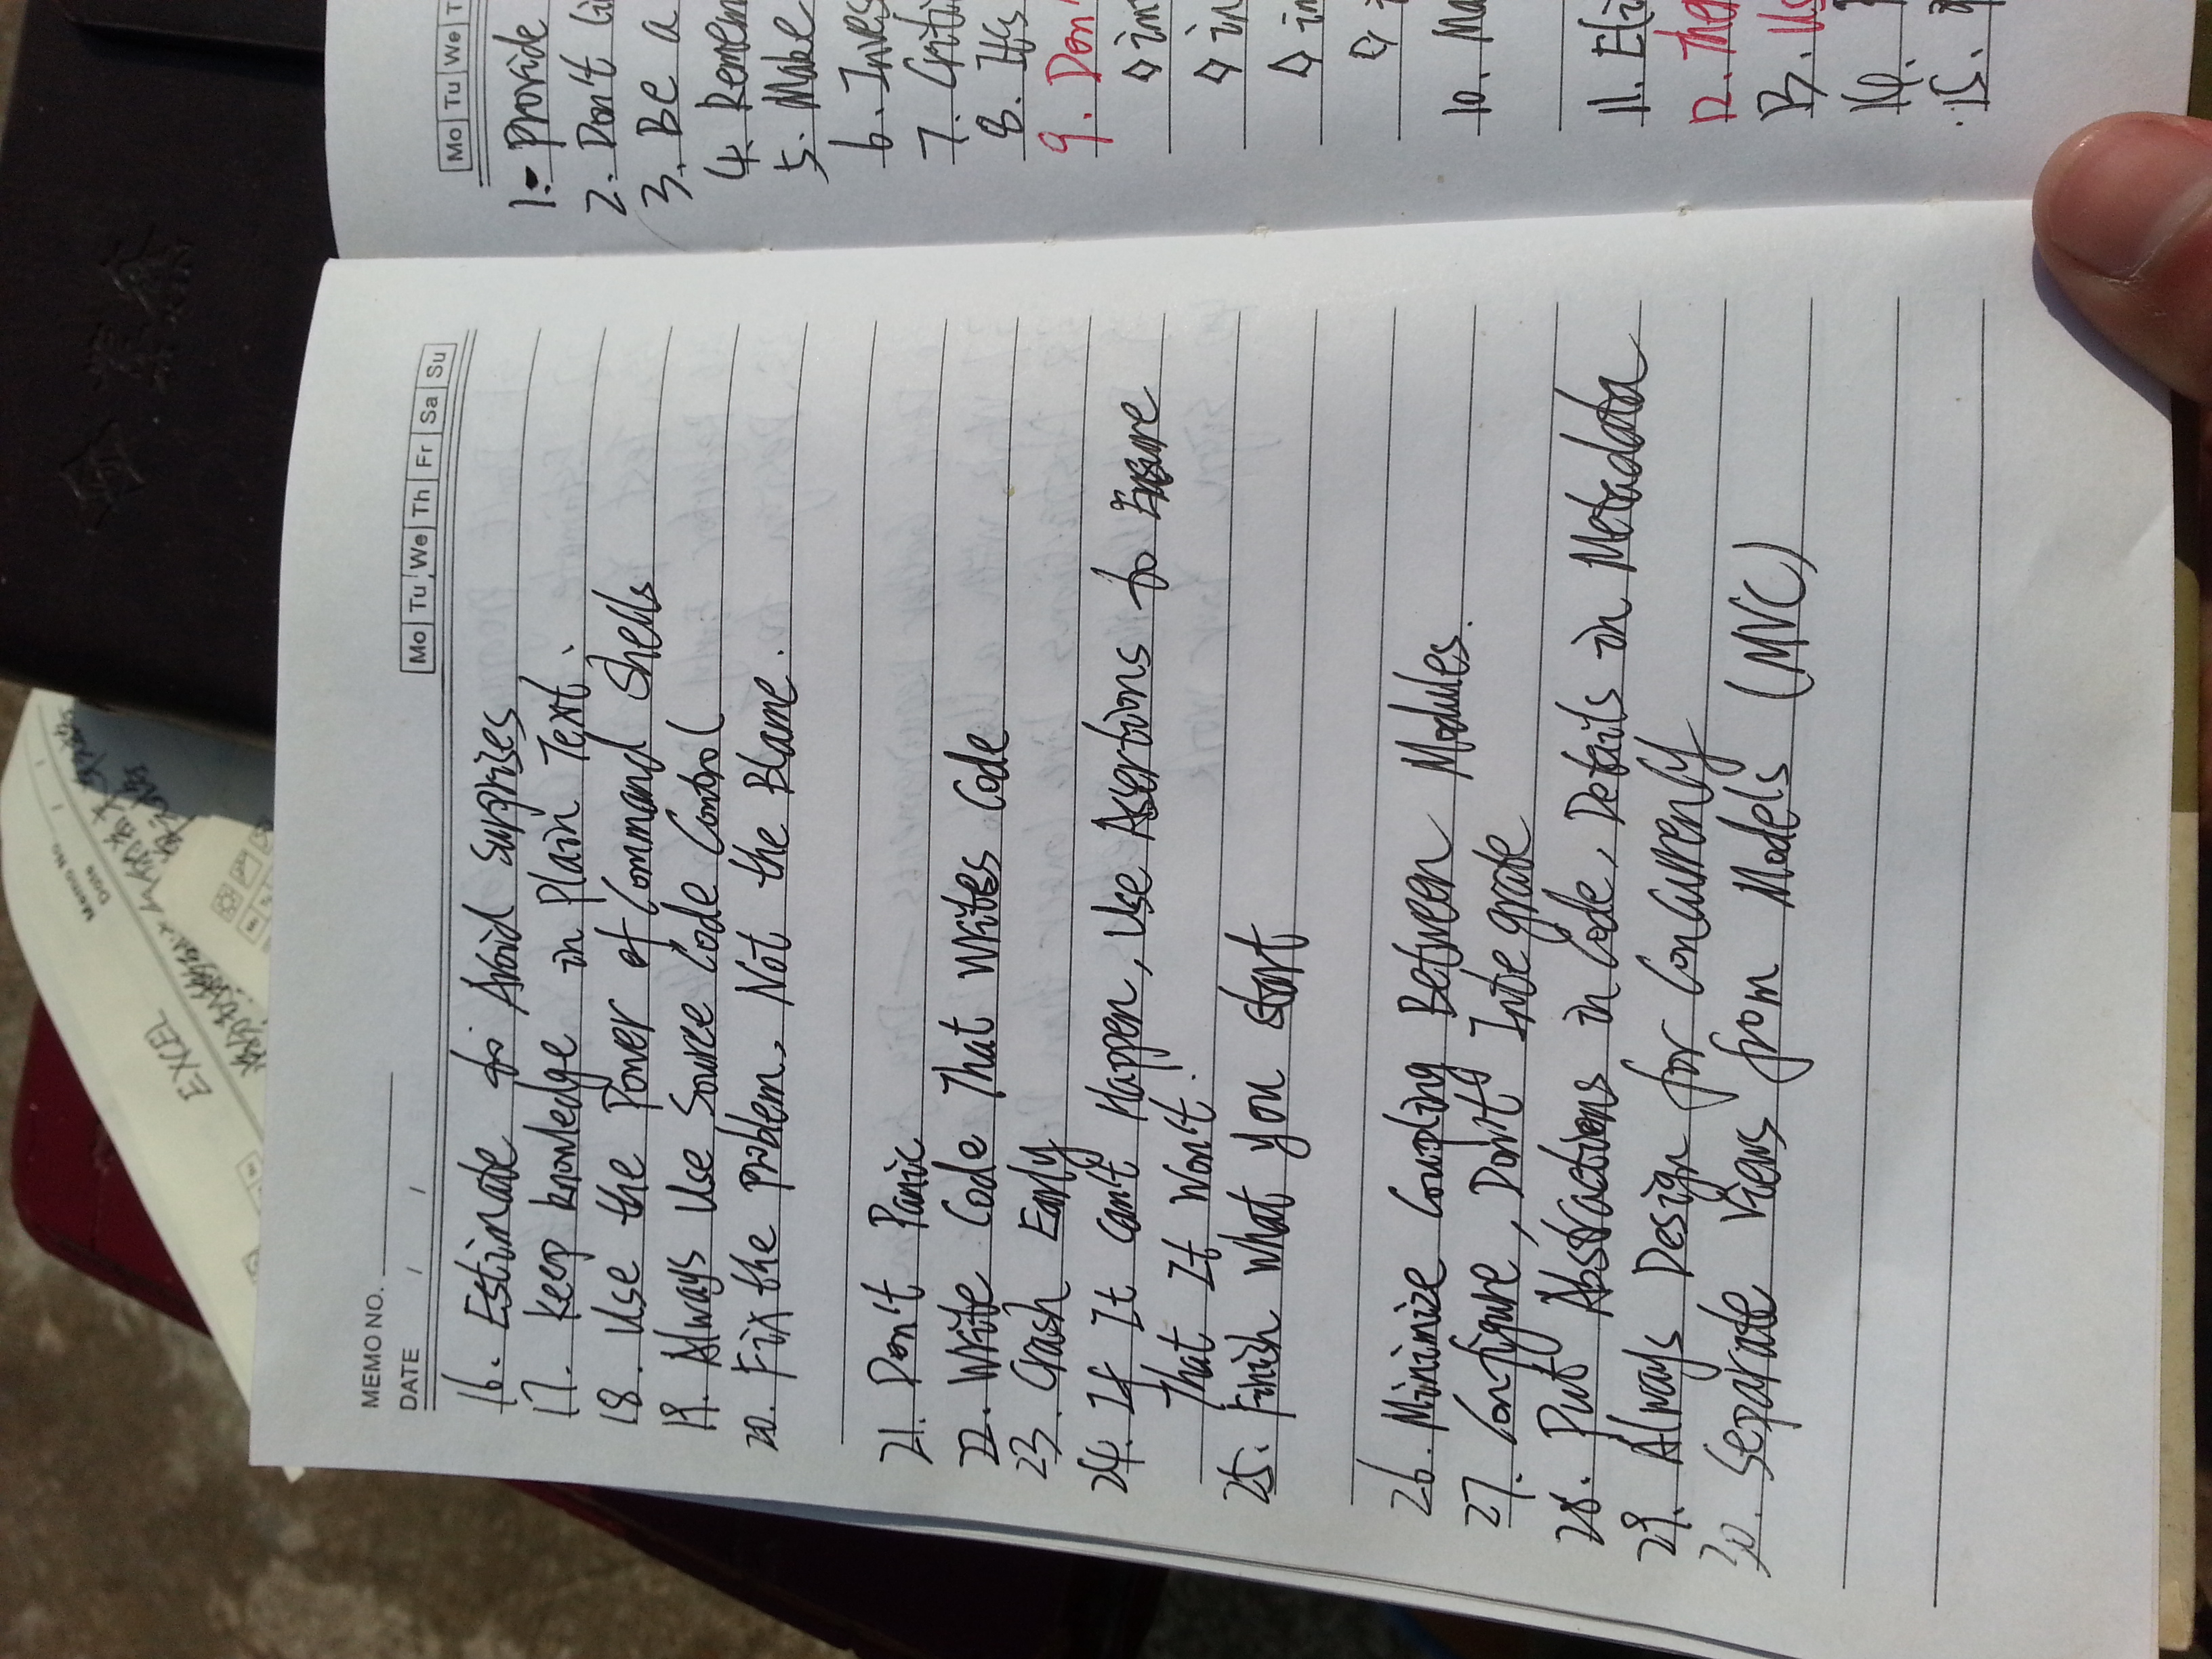 Memo No.
Date / /
EXCEL
MEMO NO.
DATE / /
Mo Tu We Th Fr Sa Su
16. Estimate to Avoid Surprises
17. Keep knowledge in Plain Text.
18. Use the Power of Command Shells
19. Always Use Source Code Control
20. Fix the Problem, Not the Blame.
21. Don't Panic
22. Write Code That Writes Code
23. Crash Early
24. If It Can't Happen, Use Assertions to Ensure
That It Won't.
25. Finish what you start
26. Minimize Coupling Between Modules.
27. Configure, Don't Integrate
28. Put Abstractions in Code, Details in Metadata
29. Always Design for Concurrency
30. Separate Views from Models (MVC)
Mo Tu We T
1. Provide
2. Don't Li
3. Be a
4. Remem
5. Make
6. Inves
7. Criti
8. It's
9. Don'
im
in
in
10. Ma
11. Eli
12. The
13. Us
14.
15.